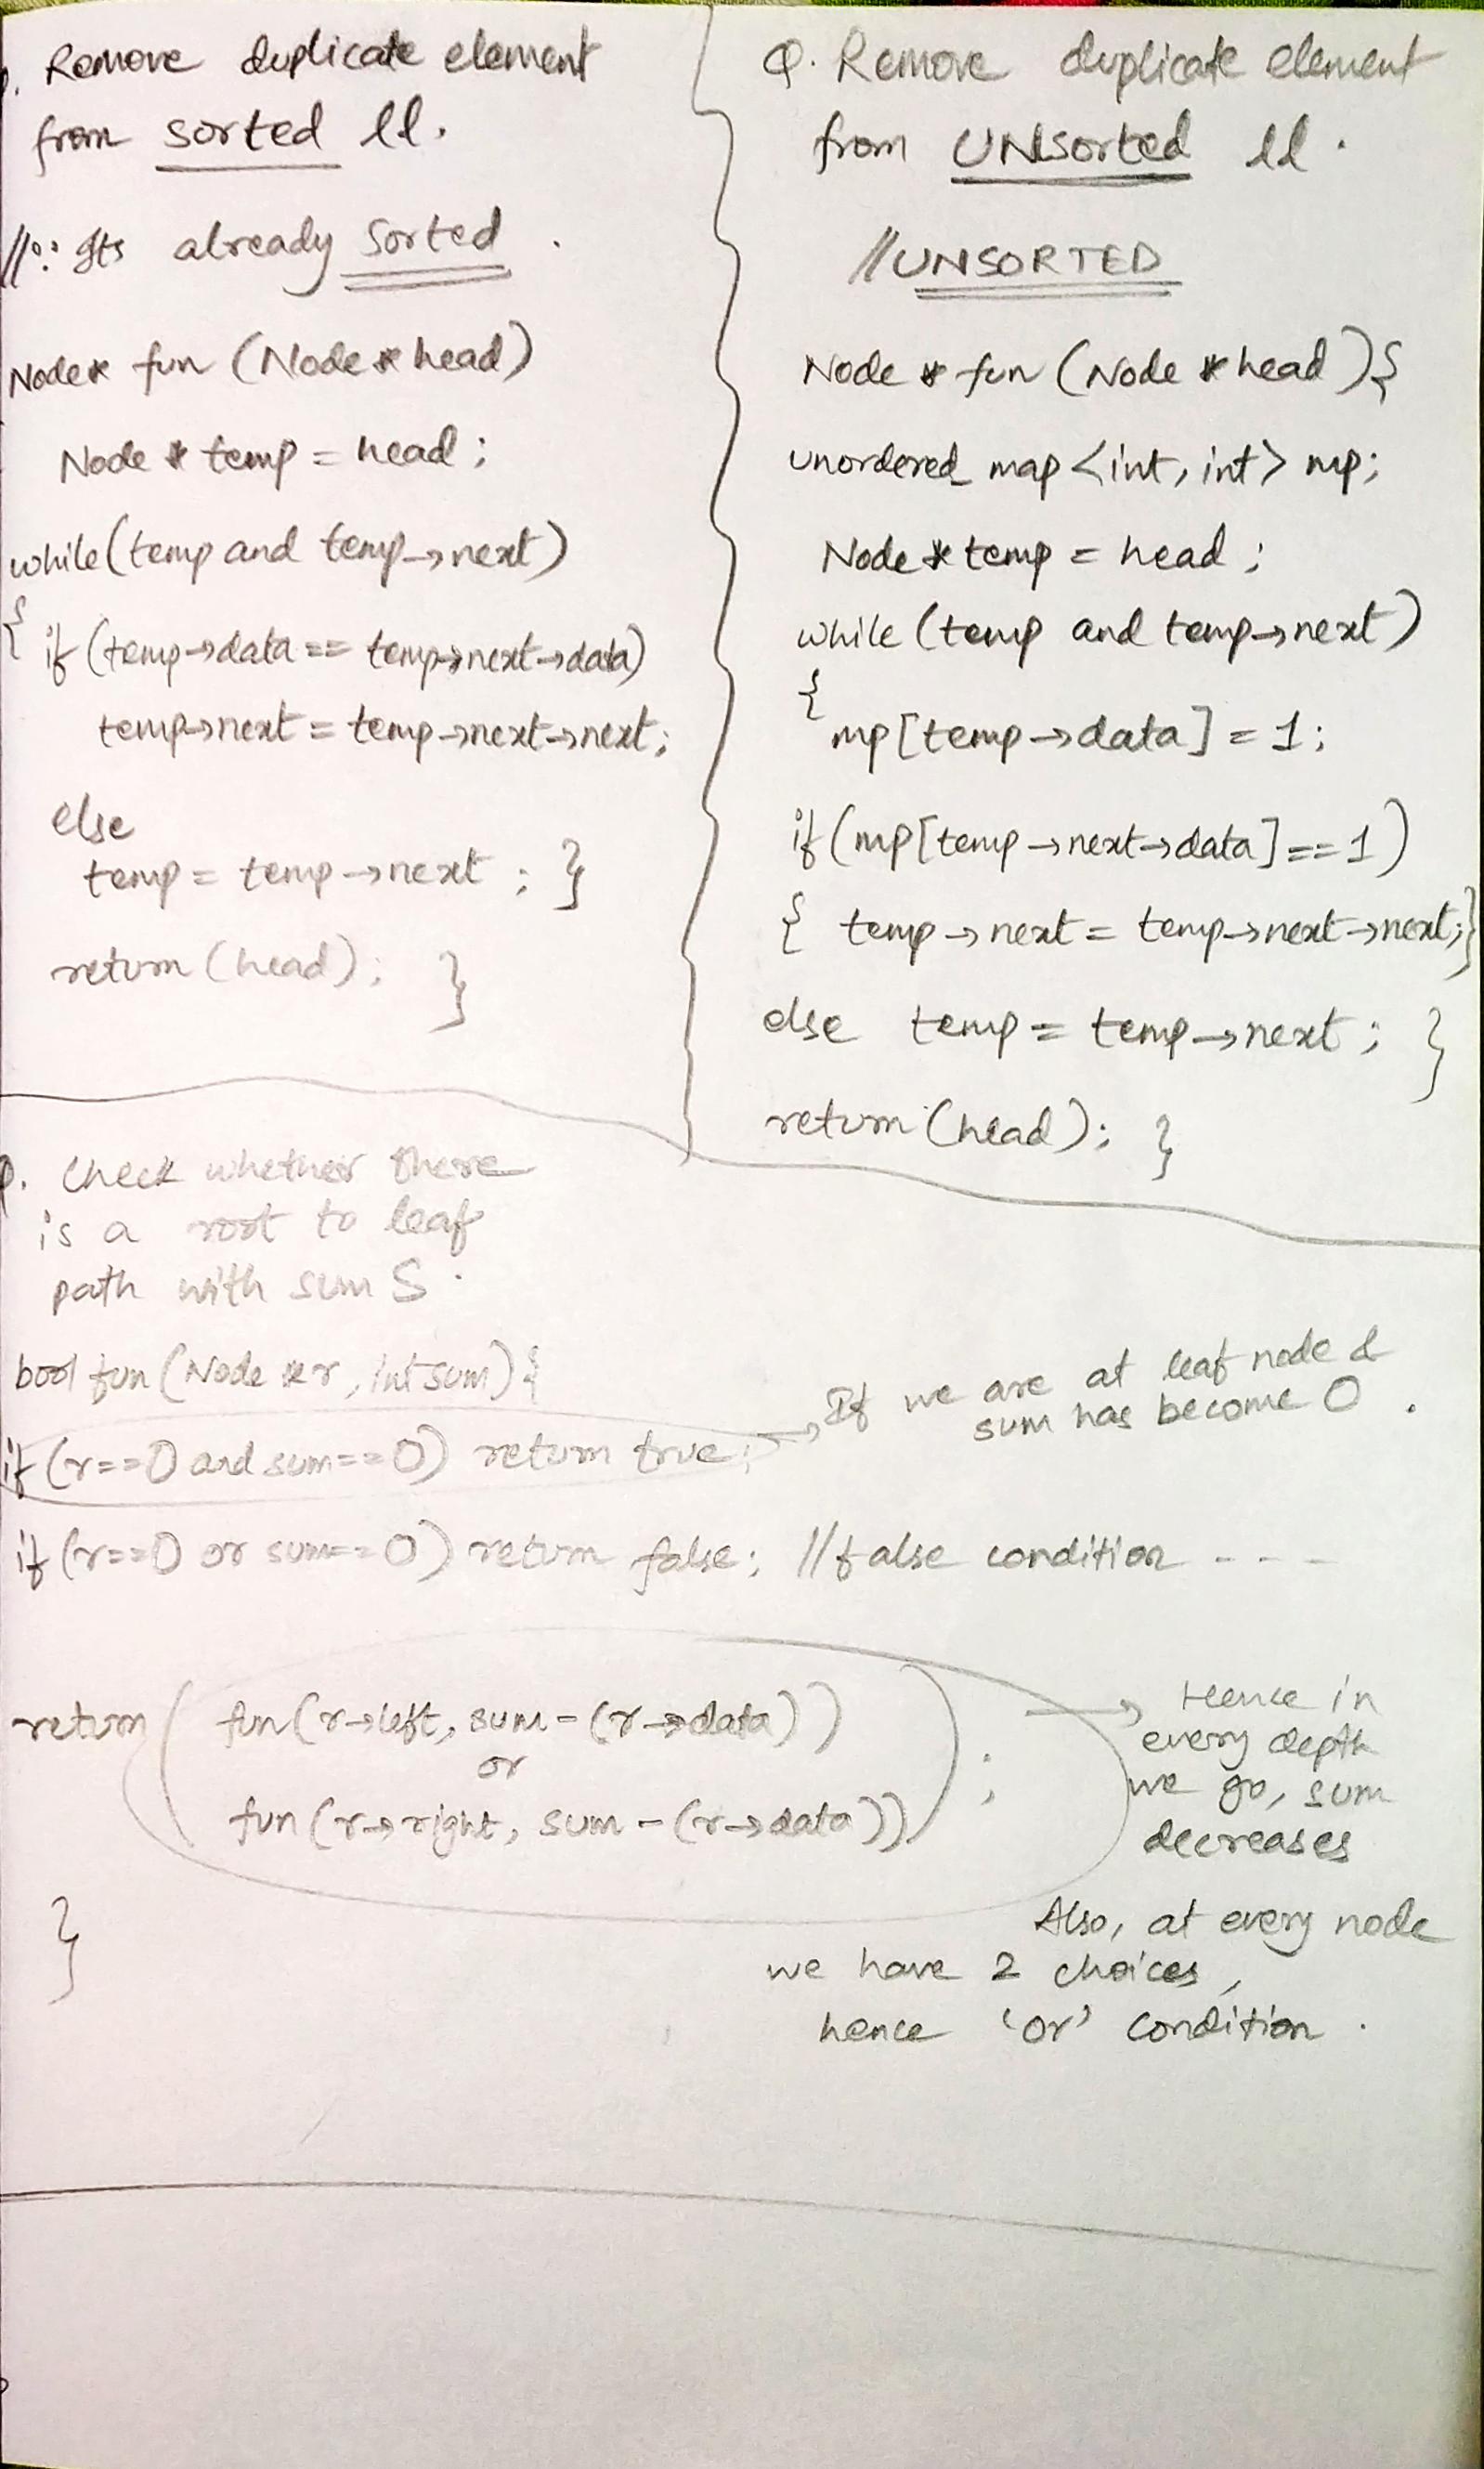 Remove duplicate element
from sorted ll.
//∵ Its already sorted.
Node* fun (Node * head)
Node * temp = head ;
while (temp and temp→next)
{ if (temp→data == temp→next→data)
temp→next = temp→next→next;
else
temp = temp→next ; }
return (head) ; }
Q. Remove duplicate element
from UNsorted ll.
//UNSORTED
Node * fun (Node * head ){
unordered_map <int, int> mp;
Node * temp = head ;
while (temp and temp→next)
{
mp[temp→data] = 1;
if (mp[temp→next→data] == 1)
{ temp→next = temp→next→next;}
else temp = temp→next ; }
return (head) ; }
Q. Check whether there
is a root to leaf
path with sum S.
bool fun (Node *r, int sum) {
if (r==0 and sum==0) return true;
→ If we are at leaf node &
sum has become 0.
if (r==0 or sum==0) return false; //false condition - - -
return ( fun(r→left, sum-(r→data))
or
fun (r→right, sum-(r→data)) ) ;
}
→ Hence in
every depth
we go, sum
decreases
Also, at every node
we have 2 choices,
hence 'or' condition.